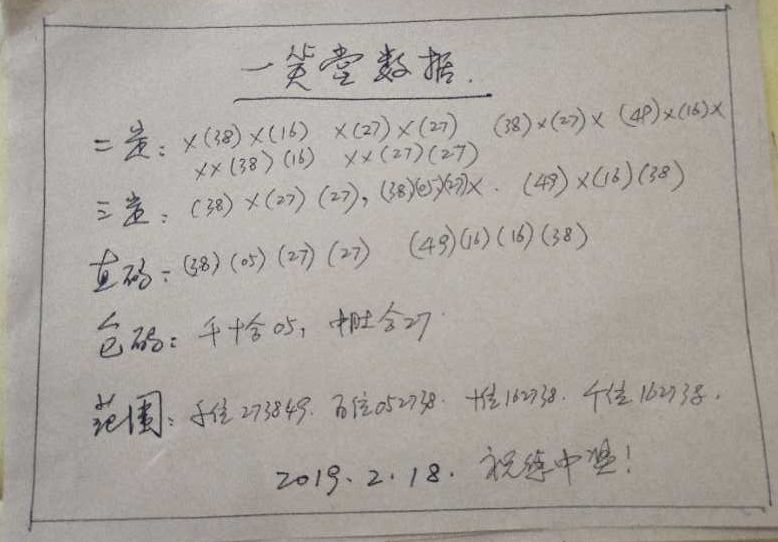 一笑堂数据.
二定: ×(38)×(16) ×(27)×(27) (38)×(27)× (49)×(16)×
××(38)(16) ××(27)(27)
三定: (38)×(27)(27), (38)(05)(27)×. (49)×(16)(38)
直码: (38)(05)(27)(27) (49)(16)(16)(38)
包码: 千十合05, 中肚合27.
范围: 千位273849. 百位052738. 十位162738. 个位162738.
2019.2.18. 祝 中 !